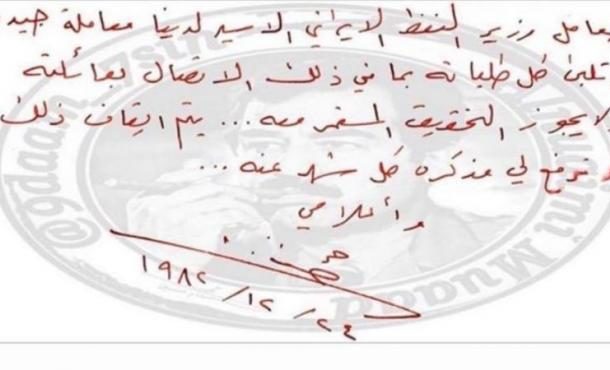 يعامل وزير النفط الايراني الاسير لدينا معاملة جيد
تلبى كل طلباته بما في ذلك الاتصال بعائلته
لايجوز التحقيق المستمر معه... يتم ايقاف ذلك
ترفع لي مذكره كل شهر عنه...
واعلامي
١٩٨٢/١٢/٢٤
@9daam
Muaad